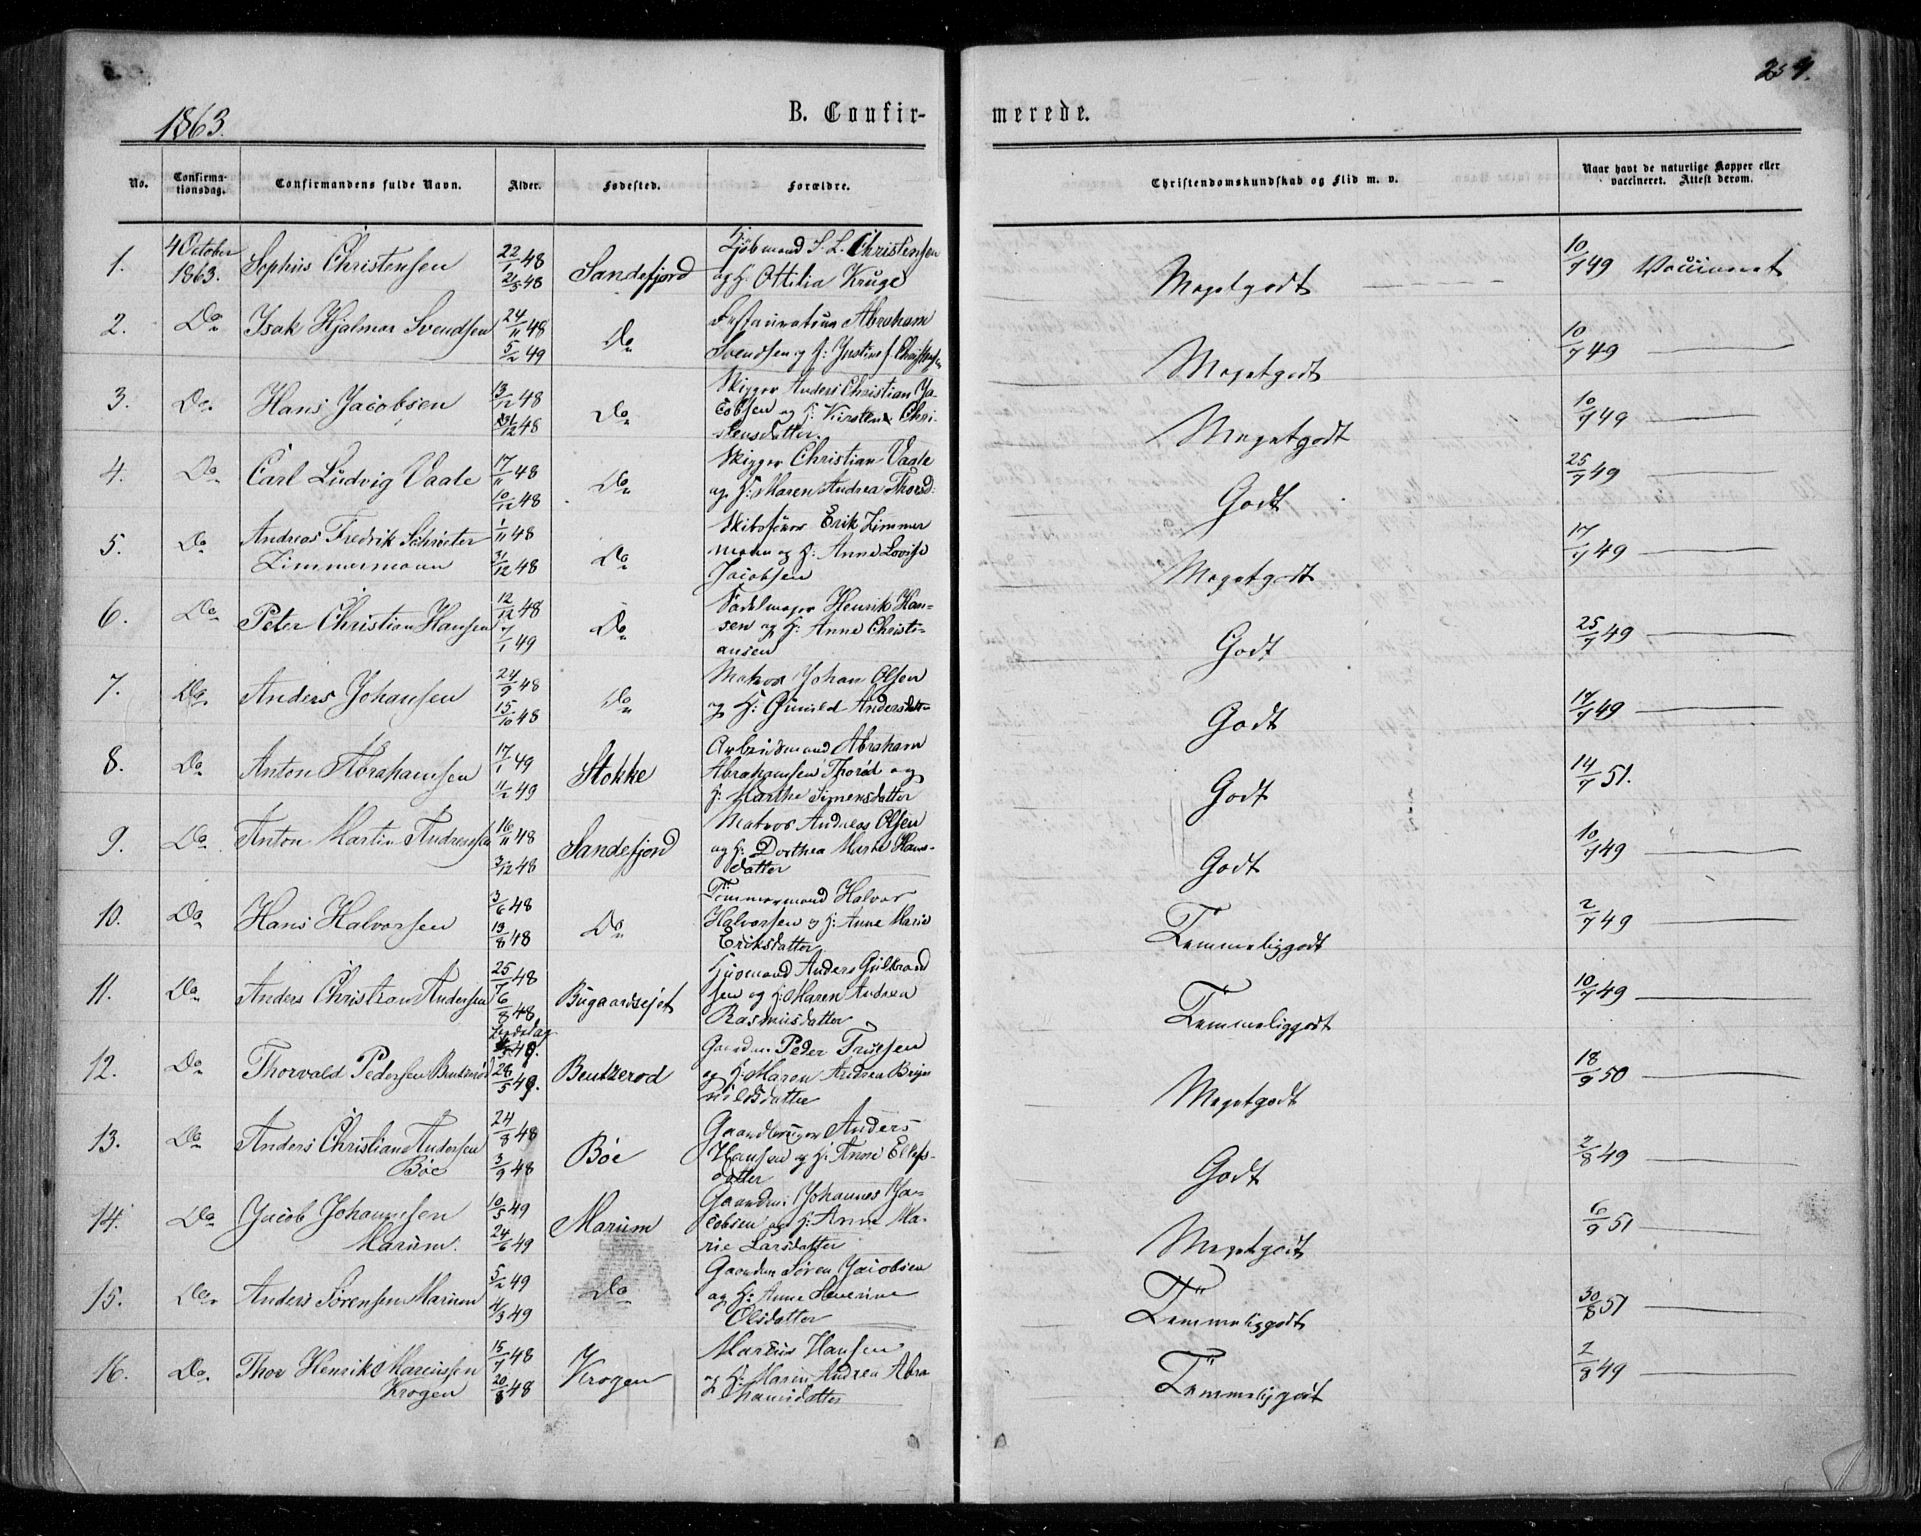 1863.
B. Confir-
merede.
No.
Confirma-
tionsdag.
Confirmandens fulde Navn.
Alder.
Fødested.
Forældre.
Christendomskundskab og Flid m. v.
Naar havt de naturlige Kopper eller
vaccineret. Attest derom.
1.
4 October
1863.
Sophus Christensen
22/1 48
21/5 48
Sandefjord
Kjøbmand S. L. Christensen
og H: Ottilia Kruge
Megetgodt
10/7 49 Vaccineret
2.
Do
Isak Hjalmar Svendsen
24/11 48
5/2 49
Do
Abraham
Svendsen og H:
Megetgodt
10/7 49
3.
Do
Hans Jacobsen
13/12 48
48
Do
Skipper Anders Christian Ja-
cobsen og H: Kirstine Chri-
stensdatter.
Megetgodt
10/7 49
4.
Do
Carl Ludvig Vaale
17/11 48
10/12 48
Do
Skipper Christian Vaale
og H: Maren Andrea Thorsd:
Godt
25/7 49
5.
Do
Andreas Fredrik Schrøeter
Zimmermann
1/11 48
31/12 48
Do
Erik Zimmer
mann og H: Anne Lovise
Jacobsen
Megetgodt
17/7 49
6.
Do
Peter Christian Hansen
12/12 48
7/1 49
Do
Sadelmager Henrik Han-
sen og H: Anne Christi-
ansen
Godt
25/7 49
7.
Do
Anders Johansen
24/9 48
15/10 48
Do
Matros Johan Olsen
og H: Gunild Andersdatt-
Godt
17/7 49
8.
Do
Anton Abrahamsen
17/1 49
11/2 49
Stokke
Arbeidsmand Abraham
Abrahamsen Thorød og
H: Marthe Simensdatter
Godt
14/7 51.
9.
Do
Anton Martin Andreassen
16/11 48
3/12 48
Sandefjord
Matros Andreas Olsen
og H: Dorthea Marie Hans-
datter
Godt
10/7 49
10.
Do
Hans Halvorsen
3/6 48
13/8 48
Do
Tømmermand Halvor
Halvorsen og H: Anne Marie
Eriksdatter
Temmeliggodt
2/7 49
11.
Do
Anders Christian Andersen
25/7 48
6/8 48
Bugaardsejet
Huusmand Anders Gulbrand
sen og H: Maren Andrea
Rasmusdatter
Temmeliggodt
10/7 49
12.
Do
Thorvald Pedersen Bentzerød
49.
28/5 49.
Bentzerod
Gaardm. Peder Truelsen
og H: Maren Andrea Bryn
nildsdatter
Megetgodt
18/9 50
13.
Do
Anders Christian Andersen
Bøe
24/8 48
3/9 48
Bøe
Gaardbruger Anders
Hansen og H: Anne Ellefs-
datter
Godt
2/8 49
14.
Do
Jacob Johannesen
Marum.
10/5 49
24/6 49
Marum
Gaardm: Johannes Ja-
cobsen og H: Anne Ma-
rie Larsdatter
Megetgodt
6/9 51
15.
Do
Anders Sørensen Marum
5/2 49
4/3 49
Do
Gaardm Søren Jacobsen
og H: Anne Severine
Olsdatter
Temmeliggodt
30/8 51
16.
Do
Thor Henrik Marcussen
Krogen
15/7 48
20/8 48
Krogen
Marcus Hansen
og H: Maren Andrea Abra
hamsdatter
Temmeliggodt
2/8 49